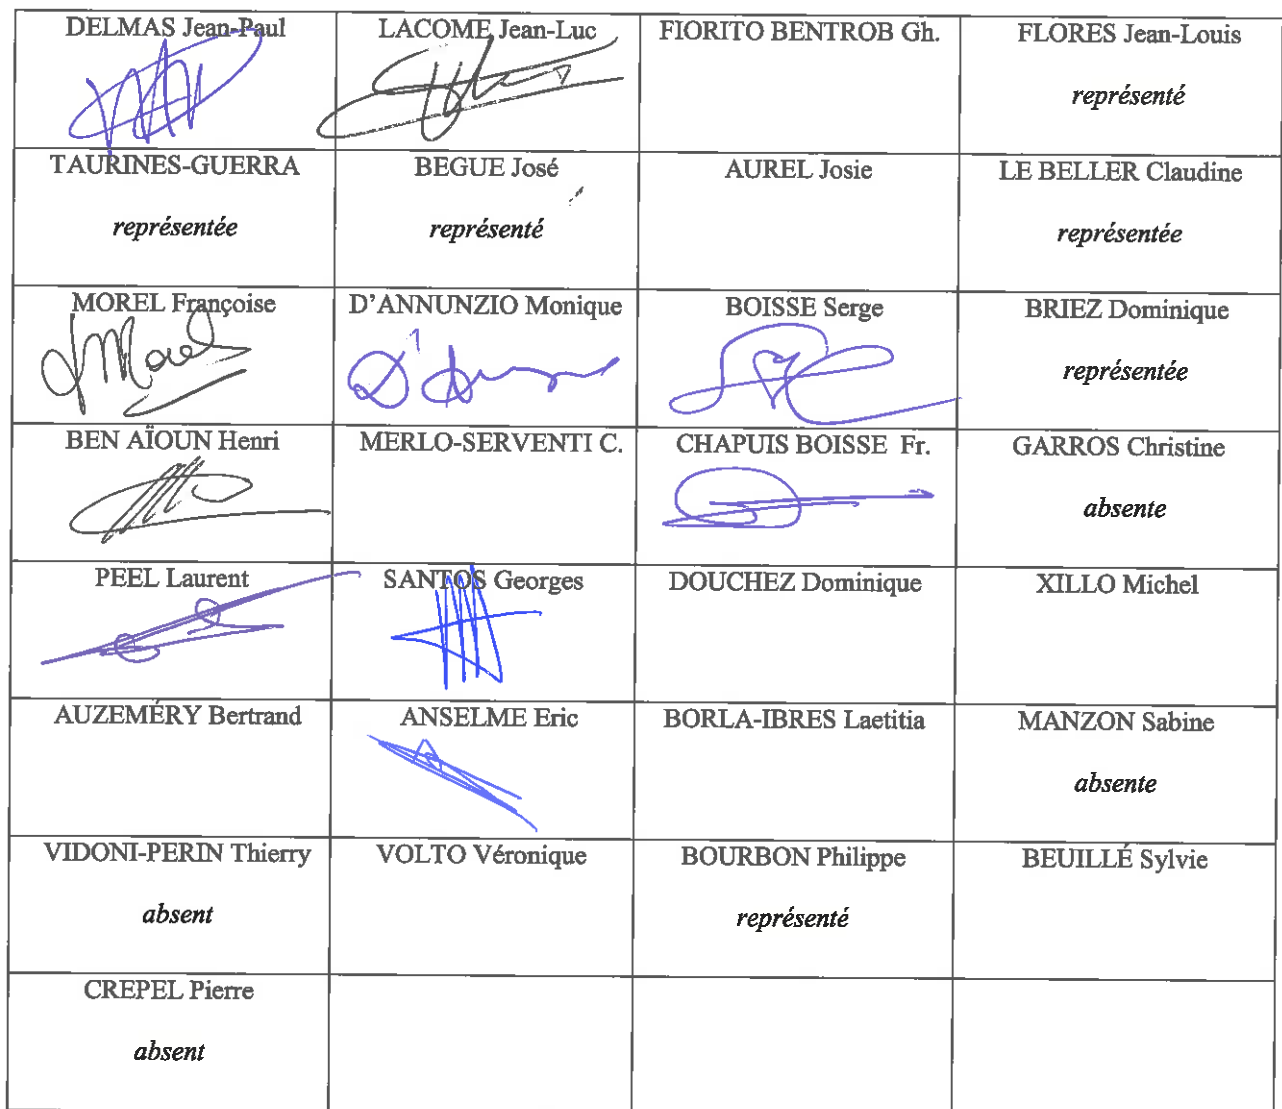 DELMAS Jean-Paul
LACOME Jean-Luc
FIORITO BENTROB Gh.
FLORES Jean-Louis
représenté
TAURINES-GUERRA
représentée
BEGUE José
représenté
AUREL Josie
LE BELLER Claudine
représentée
MOREL Françoise
Morel
D'ANNUNZIO Monique
BOISSE Serge
BRIEZ Dominique
représentée
BEN AÏOUN Henri
MERLO-SERVENTI C.
CHAPUIS BOISSE Fr.
GARROS Christine
absente
PEEL Laurent
SANTOS Georges
DOUCHEZ Dominique
XILLO Michel
AUZEMÉRY Bertrand
ANSELME Eric
BORLA-IBRES Laetitia
MANZON Sabine
absente
VIDONI-PERIN Thierry
absent
VOLTO Véronique
BOURBON Philippe
représenté
BEUILLÉ Sylvie
CREPEL Pierre
absent